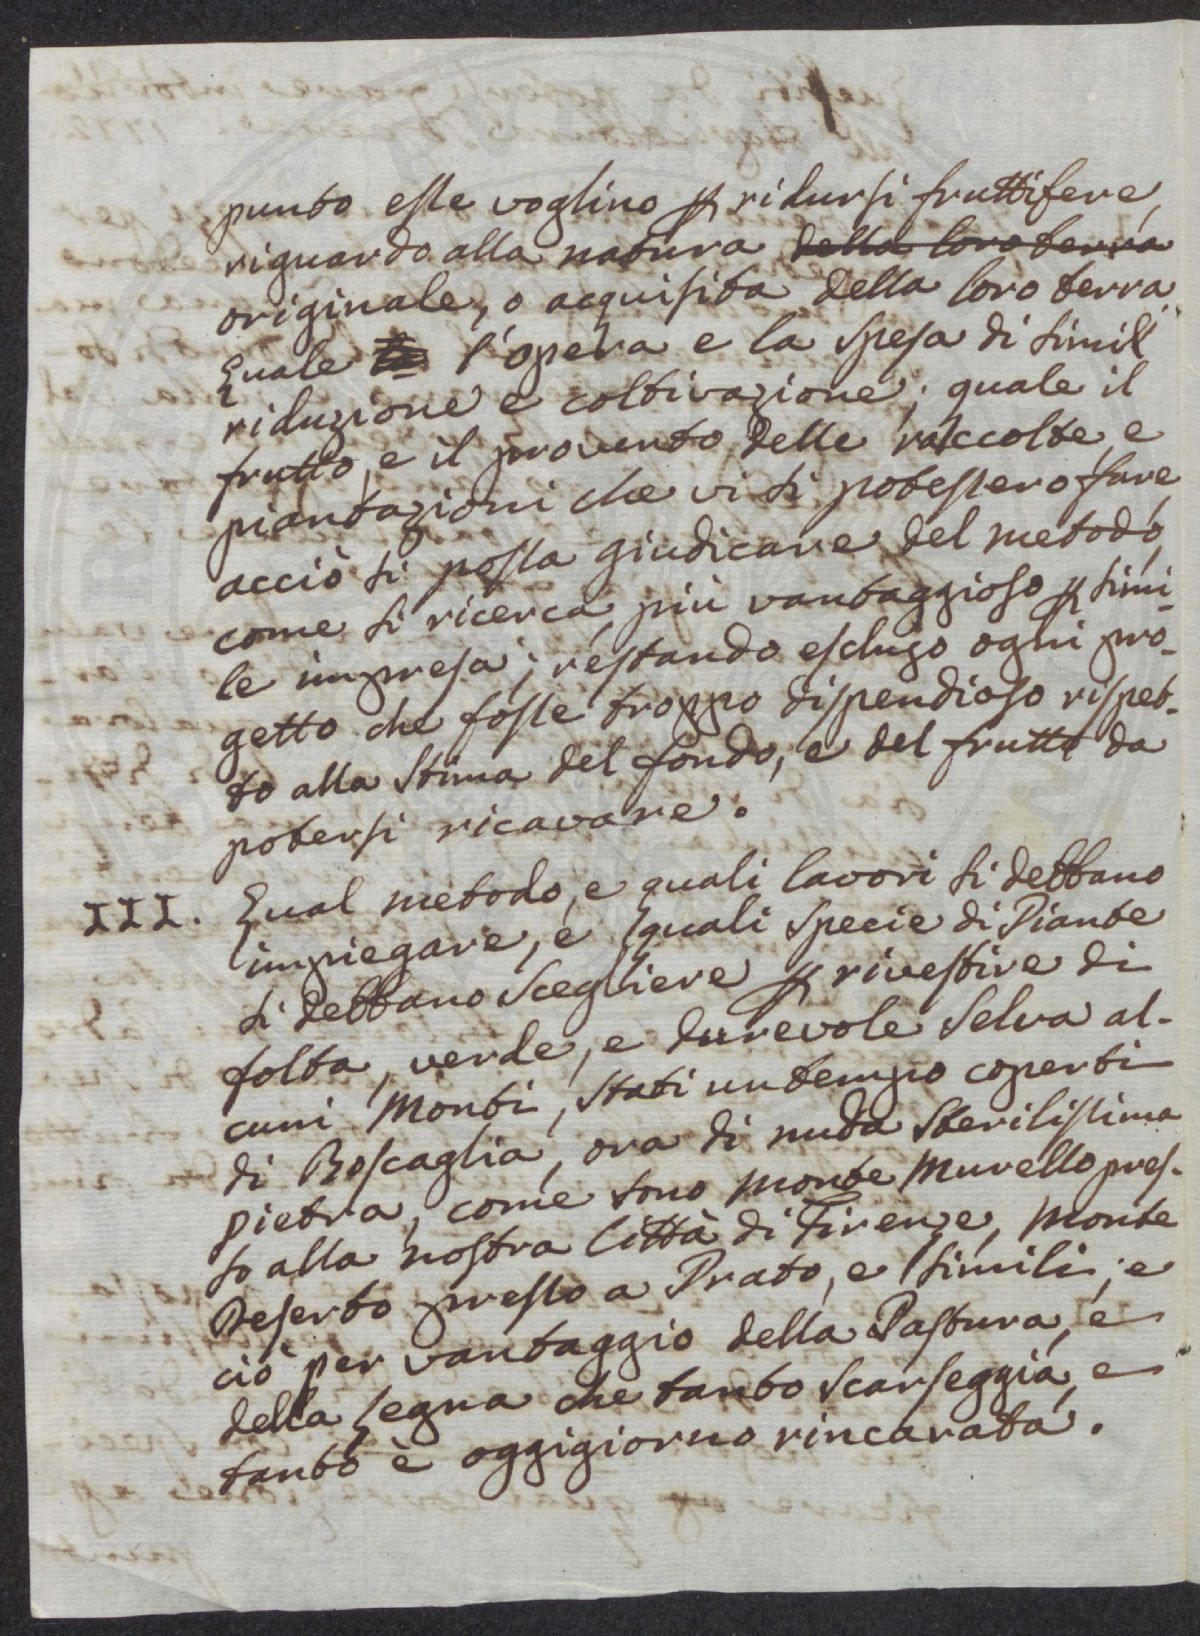 punto esse voglino p ridursi fruttifere,
riguardo alla natura della loro terra
originale, o acquisita della loro terra.
Quale l'opera e la spesa di simil
riduzione e coltivazione; quale il
frutto, e il provento delle raccolte, e
piantazioni che vi si potessero fare,
acciò si possa giudicare del metodo,
come si ricerca, più vantaggioso p simi-
le impresa; restando escluso ogni pro-
getto che fosse troppo dispendioso rispet-
to alla stima del fondo, e del frutto da
potersi ricavare.
III. Qual metodo, e quali lavori si debbano
impiegare, e quali specie di Piante
si debbano scegliere p rivestire di
folta, verde, e durevole selva al-
cuni Monti, stati un tempo coperti
di Boscaglia, ora di nuda sterilissima
pietra, come sono Monte Murello pres-
so alla nostra Città di Firenze, Monte
Deserto presso a Prato, e simili; e
ciò per vantaggio della Pastura, e
della legna che tanto scarseggia, e
tanto è oggigiorno rincarata.